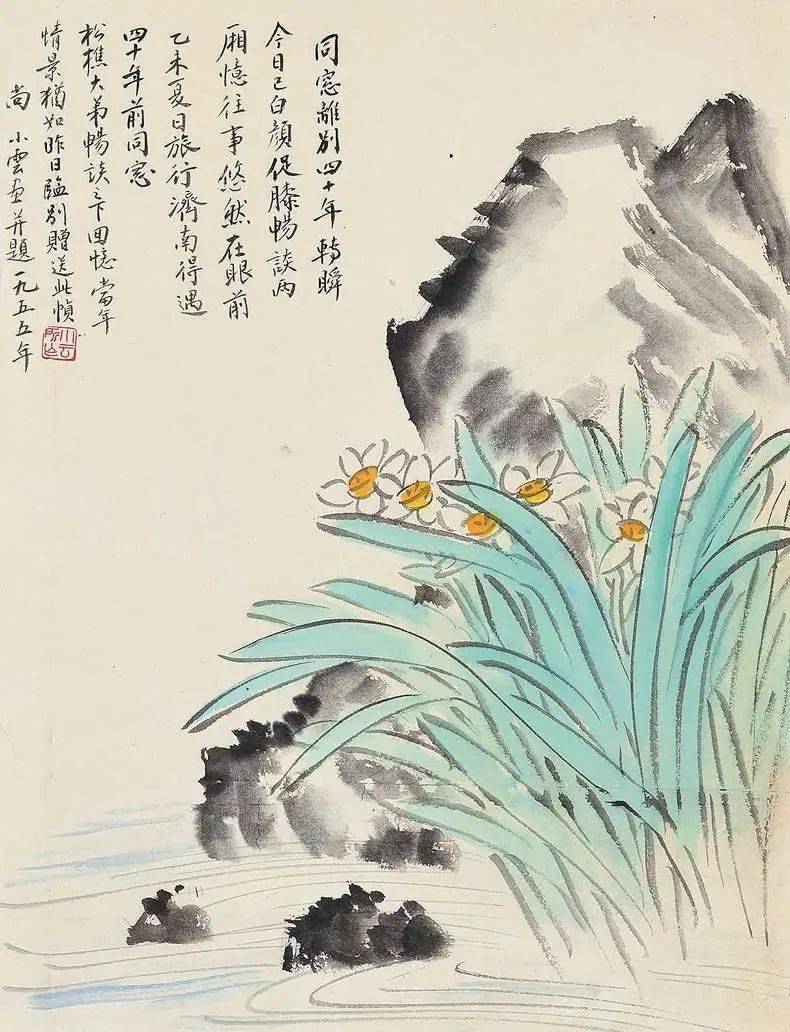 同窓離别四十年轉瞬
今日已白顔促膝暢談兩
廂憶往事悠然在眼前
乙未夏日旅行濟南得遇
四十年前同窓
松樵大弟暢談之下回憶當年
情景猶如昨日臨别贈送此幀
尚小雲画并題一九五五年